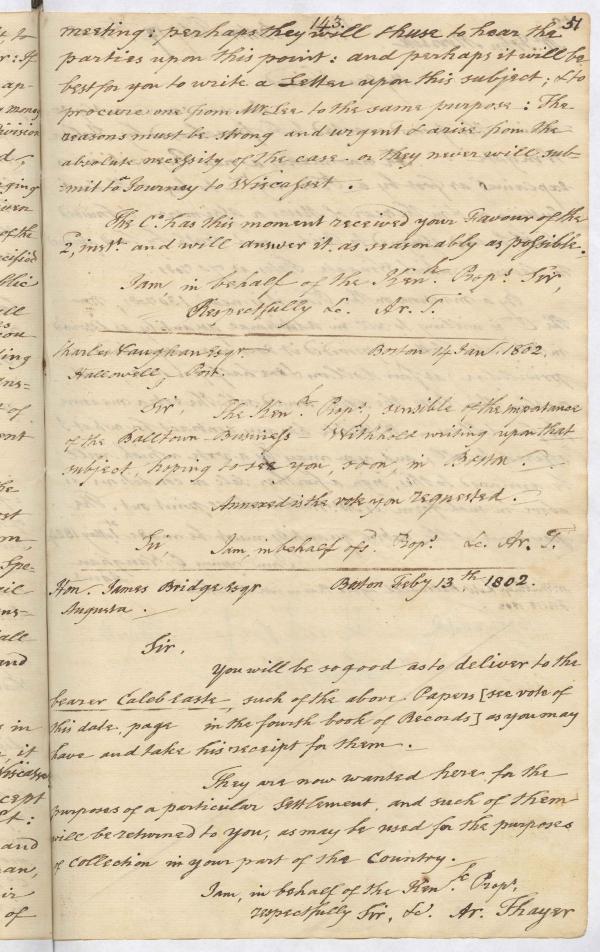 143.
51
meeting: perhaps they will chuse to hear the
parties upon this point: and perhaps it will be
best for you to write a Letter upon this subject; & to
procure one from Mr. Lee to the same purpose: The
reasons must be strong and urgent & arise from the
absolute necessity of the case or they never will sub-
=mit to a Journey to Wiscasset.
The Co. has this moment received your Favour of the
2, inst. and will answer it as seasonably as possible.
I am in behalf of the Kenk. Props. Sir,
Respectfully &c. Ar. T.
Charles Vaughan Esqr. Boston 14 Jany. 1802.
Hallowell, Post.
Sir, The Kenk. Props, sensible of the importance
of the Balltown Business Withhold writing upon that
subject, hoping to see you, soon, in Boston.
Annexed is the vote you requested.
Sir I am, in behalf of sd. Props. &c. Ar. T.
Hon. James Bridge Esqr Boston Feby 13th 1802.
Augusta.
Sir,
You will be so good as to deliver to the
bearer Caleb Easte, such of the above Papers [see vote of
this date, page in the fourth book of Records] as you may
have and take his receipt for them.
They are now wanted here for the
purposes of a particular Settlement, and such of them
will be returned to you, as may be used for the purposes
of Collection in your part of the Country.
I am, in behalf of the Kenk. Props,
respectfully Sir, &c. Ar. Thayer